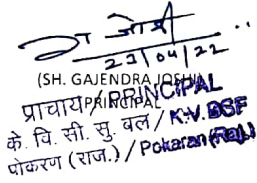 23/04/22
(SH. GAJENDRA JOSHI)
PRINCIPAL
प्राचार्य / PRINCIPAL
के. वि. सी. सु. बल / K.V. BSF
पोकरण (राज.) / Pokaran (Raj.)